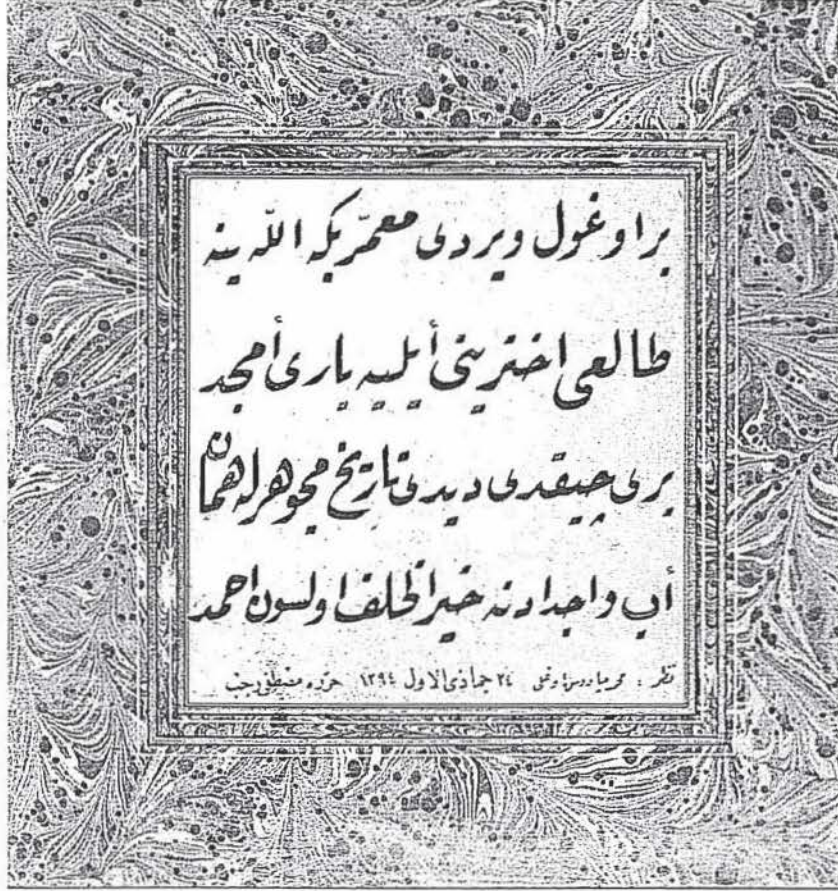 بر اوغول ويردى معمّر بكه اللّه ينه
طالعى اخترينى أيليه يارى أمجد
برى چيقدى ديدى تاريخ مجوهرله همان
أب و اجدادنه خير الخلف اولسون احمد
٢٤ جماذى الاول ١٣٩٤ حرره مصطفى رجب